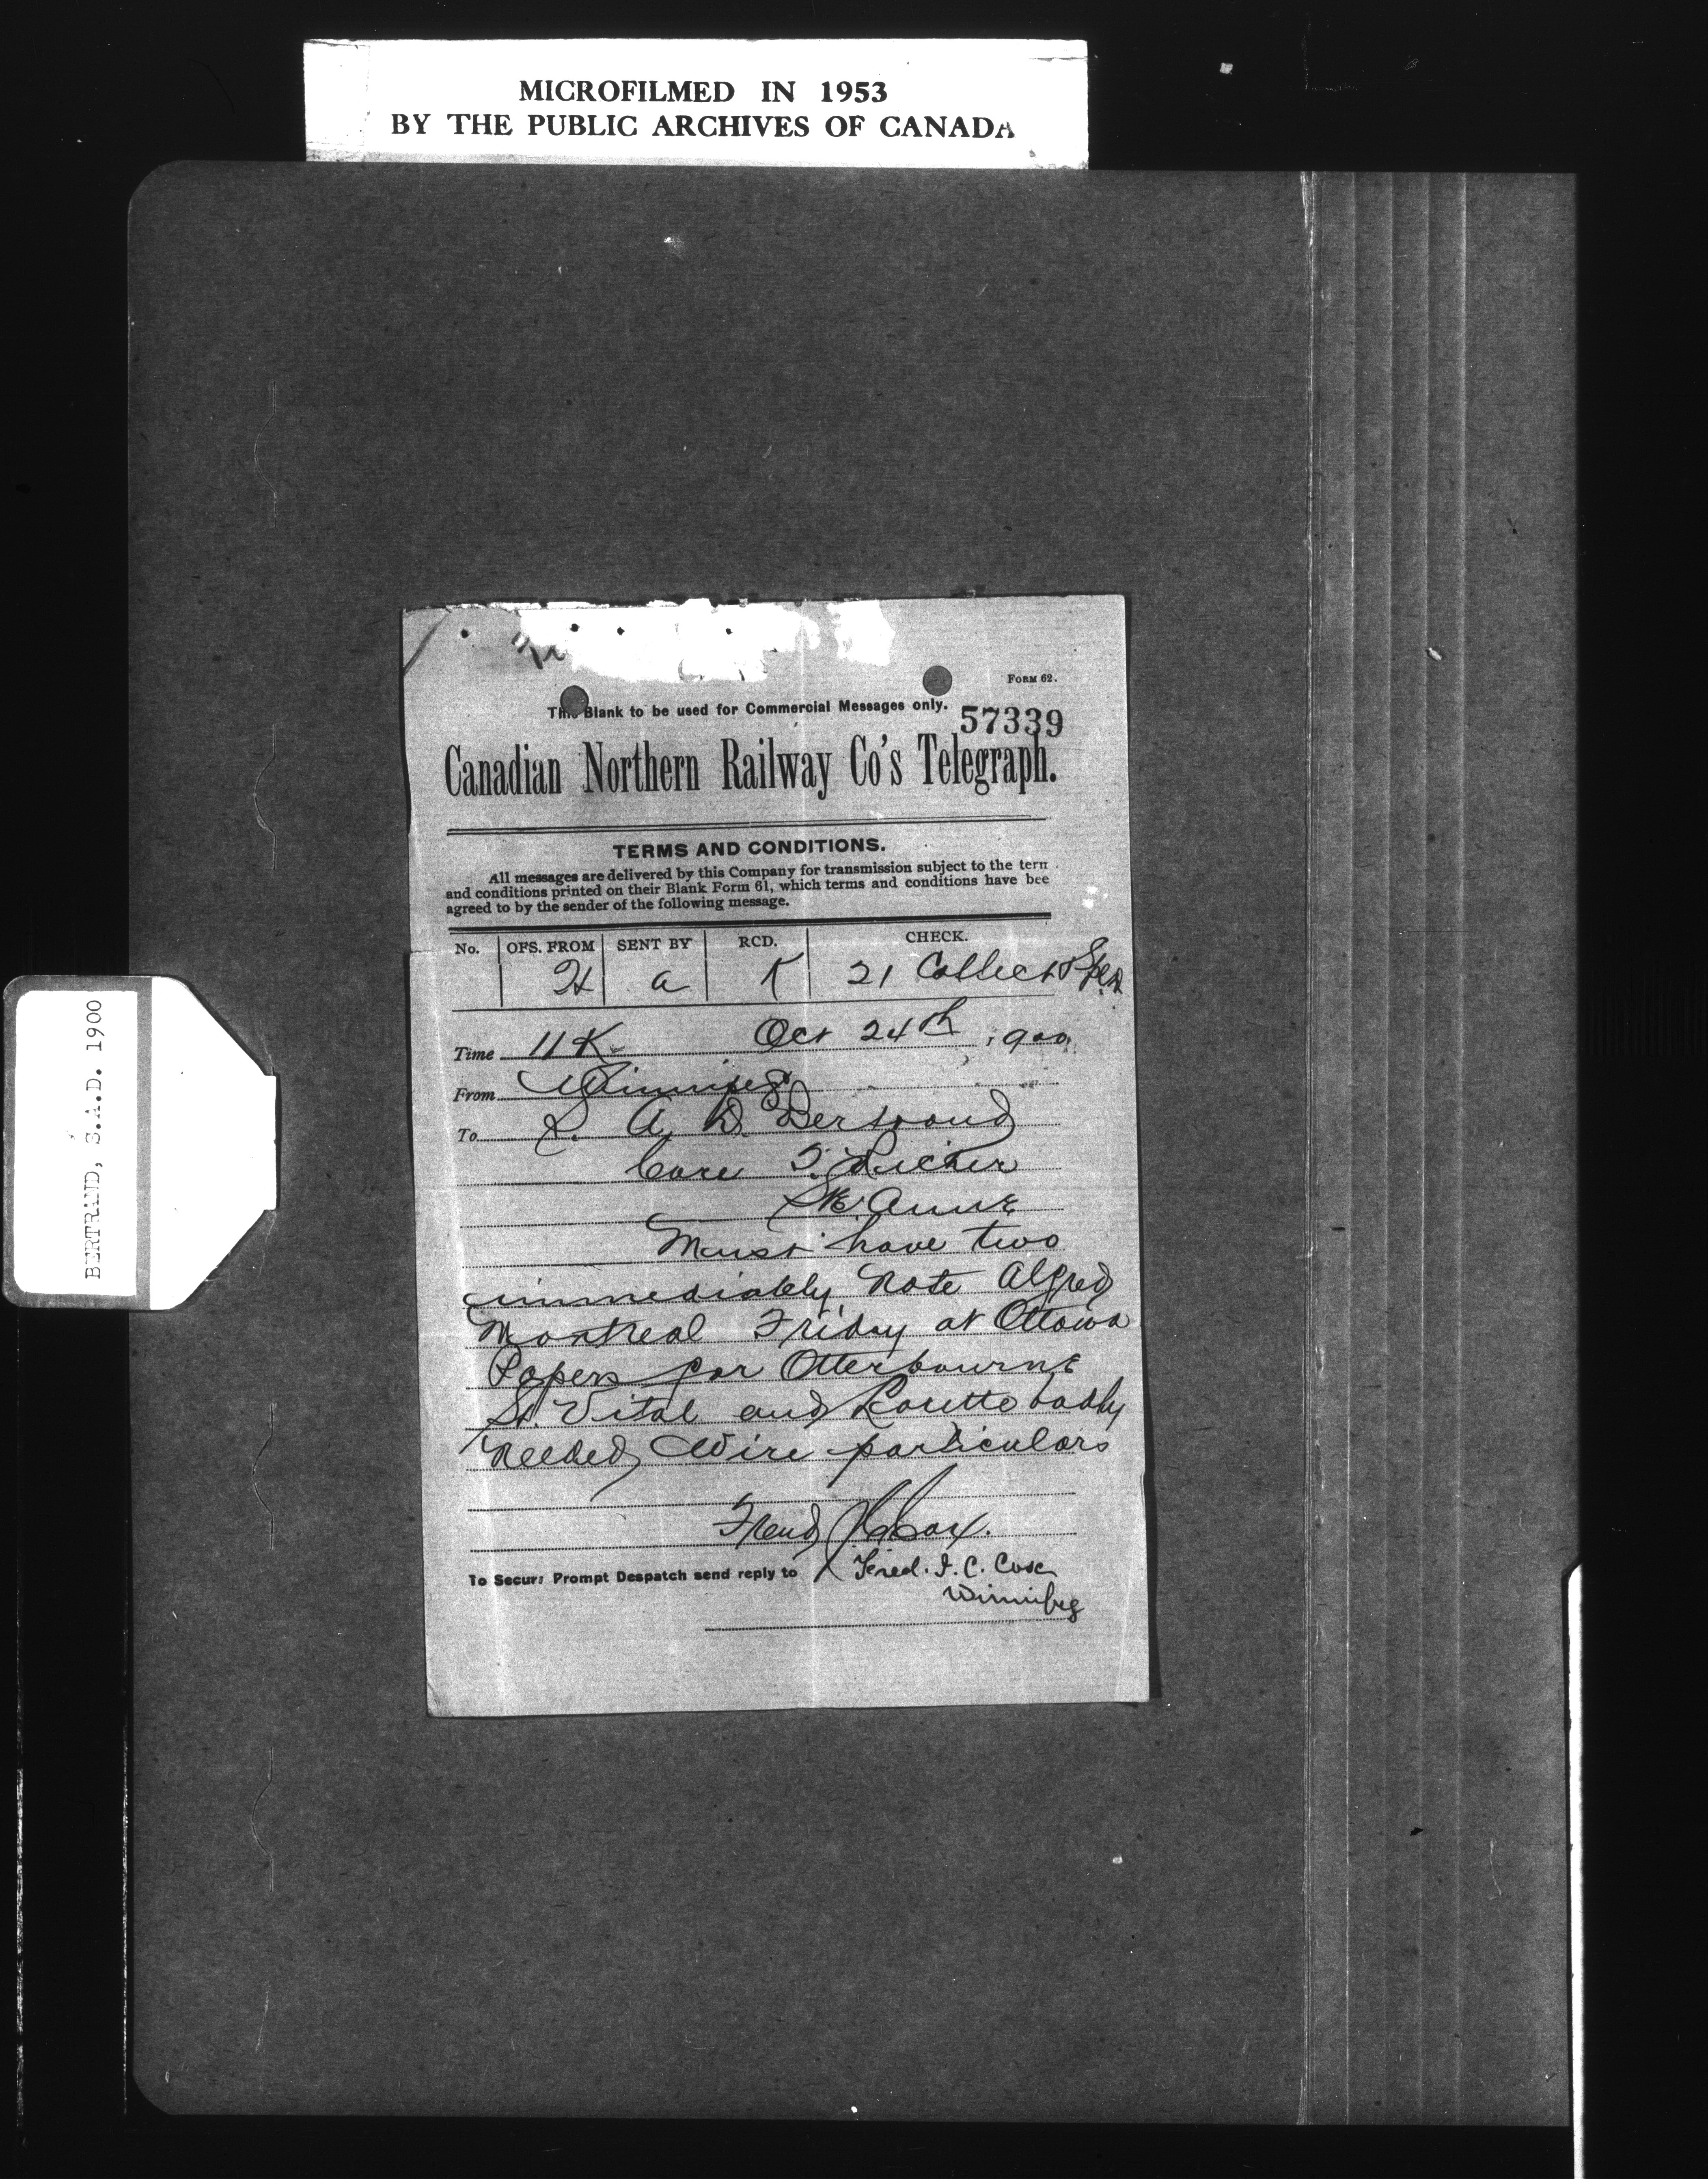 MICROFILMED IN 1953
BY THE PUBLIC ARCHIVES OF CANADA
BERTRAND, S.A.D. 1900
FORM 62.
This Blank to be used for Commercial Messages only.
57339
Canadian Northern Railway Co's Telegraph.
TERMS AND CONDITIONS.
All messages are delivered by this Company for transmission subject to the term
and conditions printed on their Blank Form 61, which terms and conditions have bee
agreed to by the sender of the following message.
No. OFS. FROM SENT BY RCD. CHECK.
a K 21 Collect
Time 11 K Oct 24th 1900
From Winnipeg
To A. D. Bertrand
Care Richer
Ste Anne
Must have two
immediately Note Alfred
Montreal Friday at Ottawa
Papers for Otterbourne
St. Vital and Lorette badly
needed Wire particulars
Fred Cox.
To Secure Prompt Despatch send reply to Fred. I. C. Cox
Winnipeg